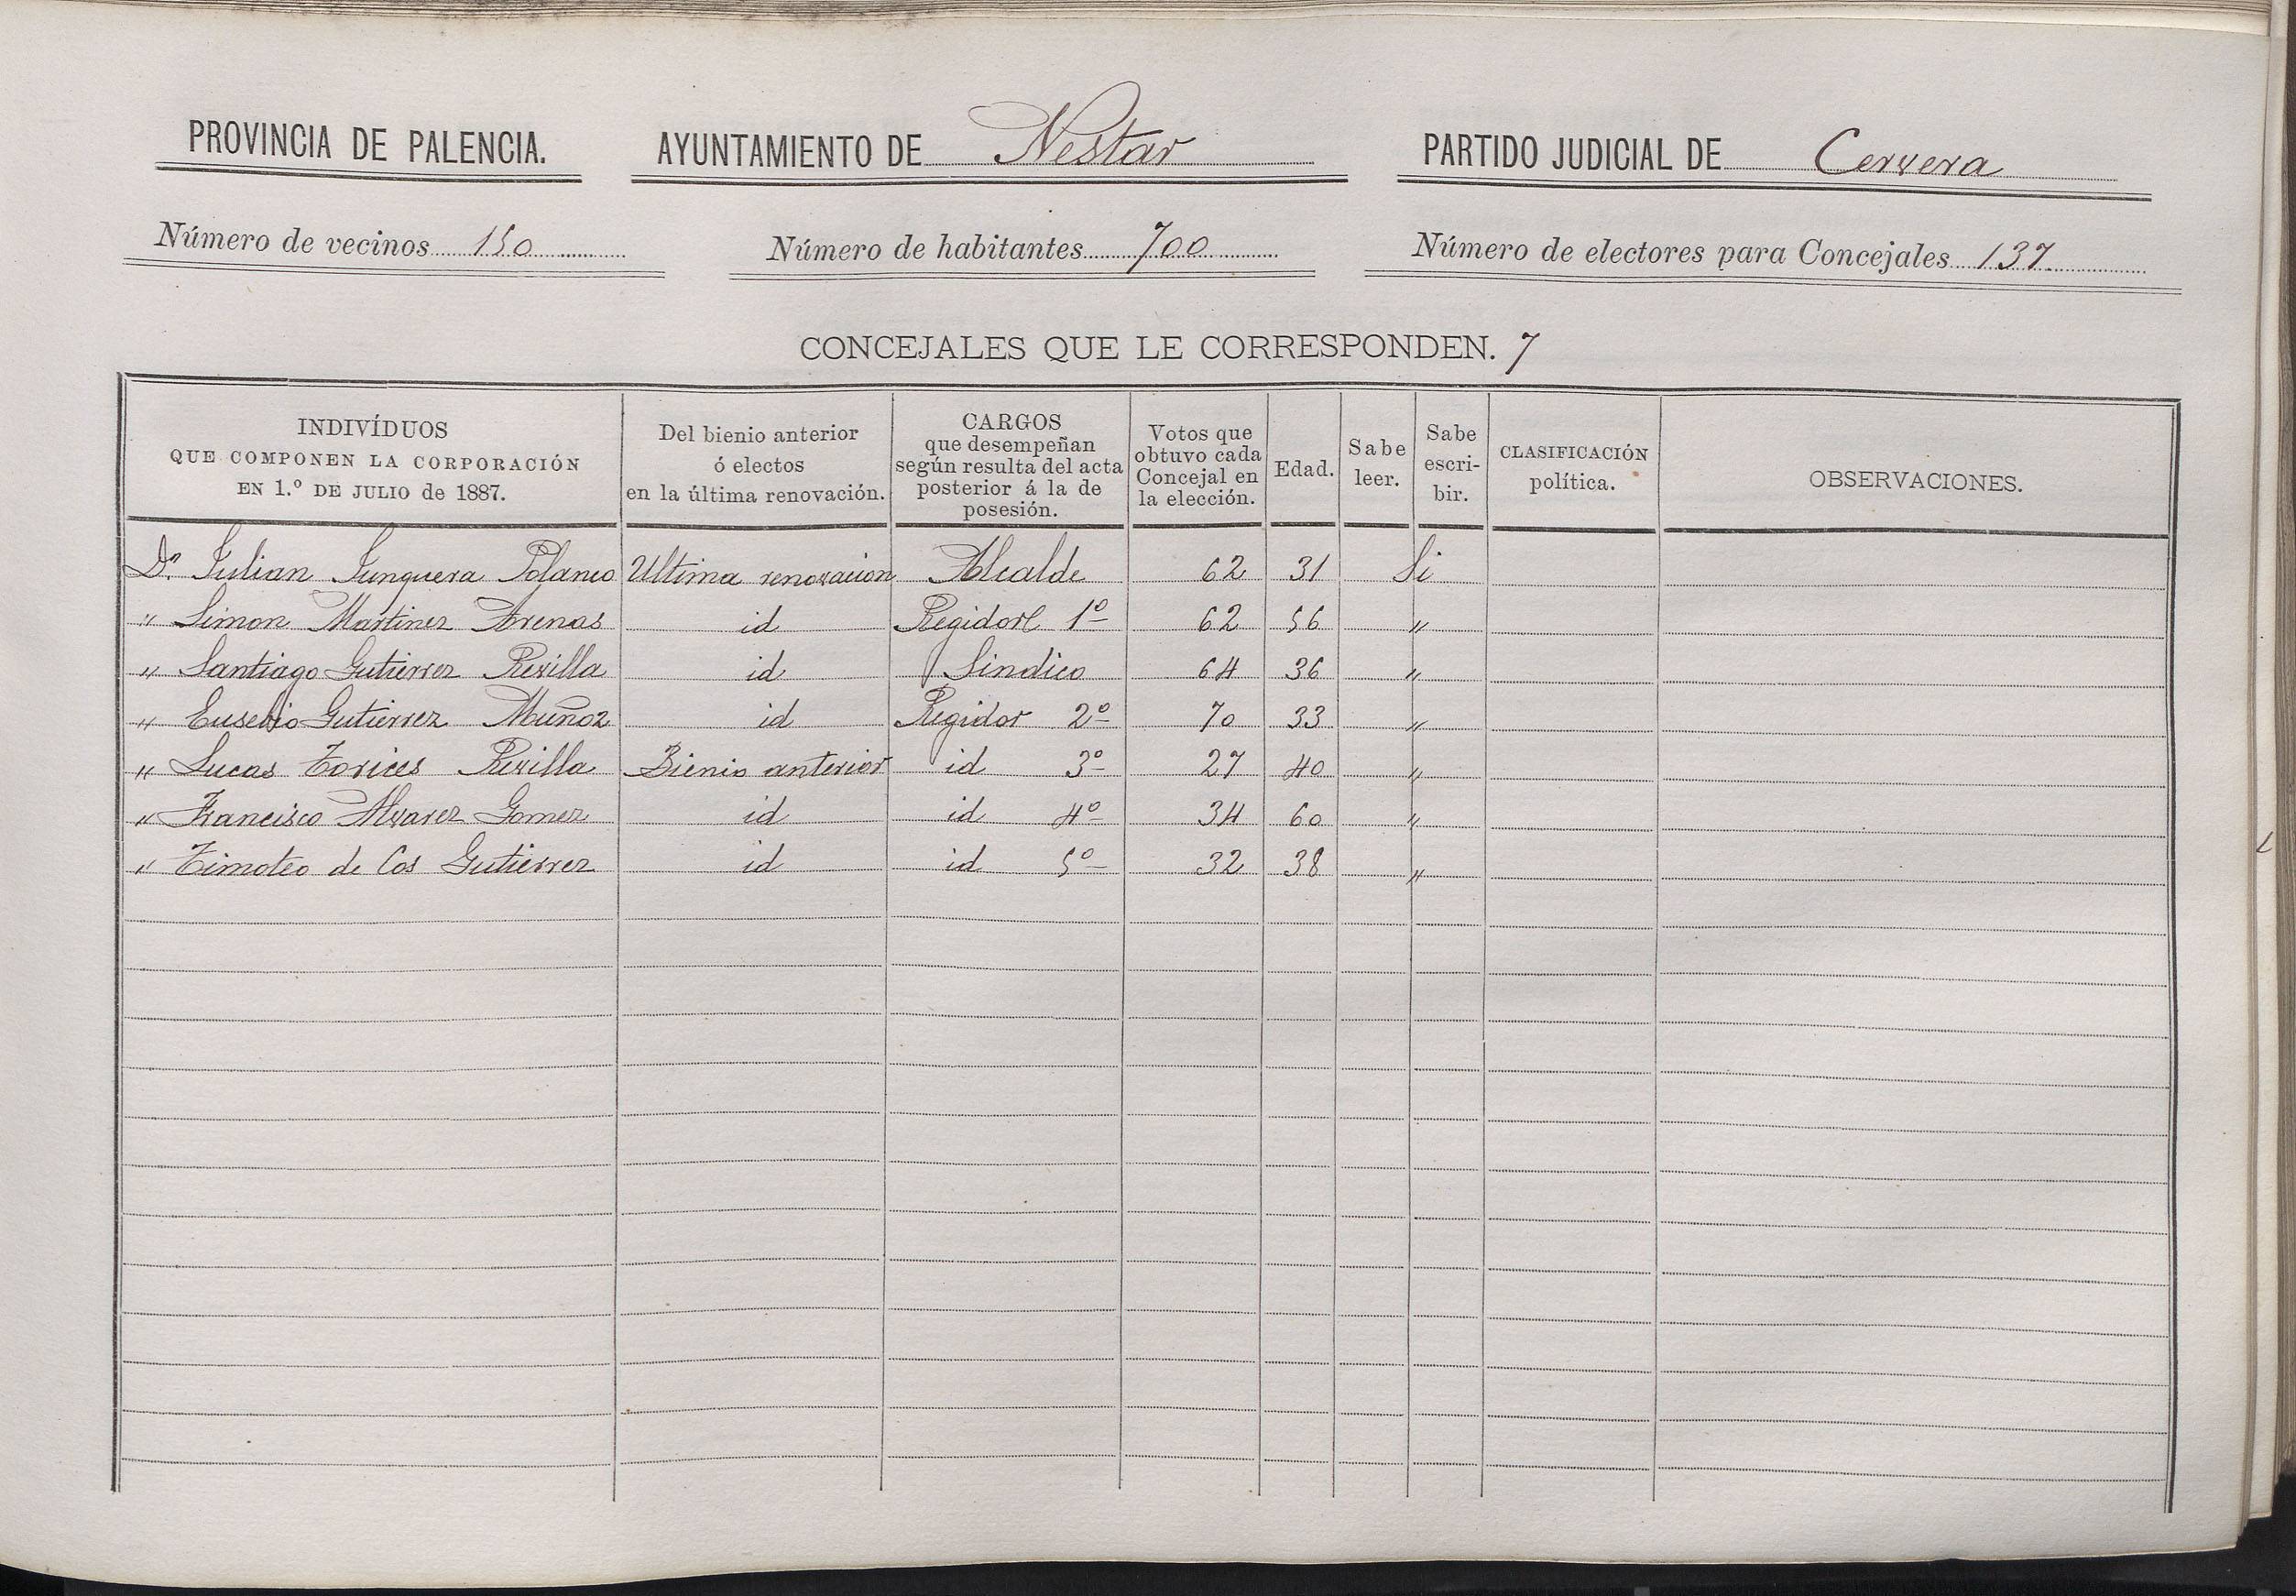 PROVINCIA DE PALENCIA. AYUNTAMIENTO DE Nestar PARTIDO JUDICIAL DE Cervera
Número de vecinos 150 Número de habitantes 700 Número de electores para Concejales 137
CONCEJALES QUE LE CORRESPONDEN. 7
INDIVÍDUOS QUE COMPONEN LA CORPORACIÓN EN 1.º DE JULIO de 1887. Del bienio anterior ó electos en la última renovación. CARGOS que desempeñan según resulta del acta posterior á la de posesión. Votos que obtuvo cada Concejal en la elección. Edad. Sabe leer. Sabe escri-bir. CLASIFICACIÓN política. OBSERVACIONES.
Dn. Julian Junquera Polanco Ultima renovacion Alcalde 62 31 Si
" Simon Martinez Arenas id Regidor 1º 62 56 "
" Santiago Gutierrez Revilla id Sindico 64 36 "
" Eusebio Gutierrez Muñoz id Regidor 2º 70 33 "
" Lucas Torices Revilla Bienio anterior id 3º 27 40 "
" Francisco Alvarez Gomez id id 4º 34 60 "
" Timoteo de Cos Gutierrez id id 5º 32 38 "